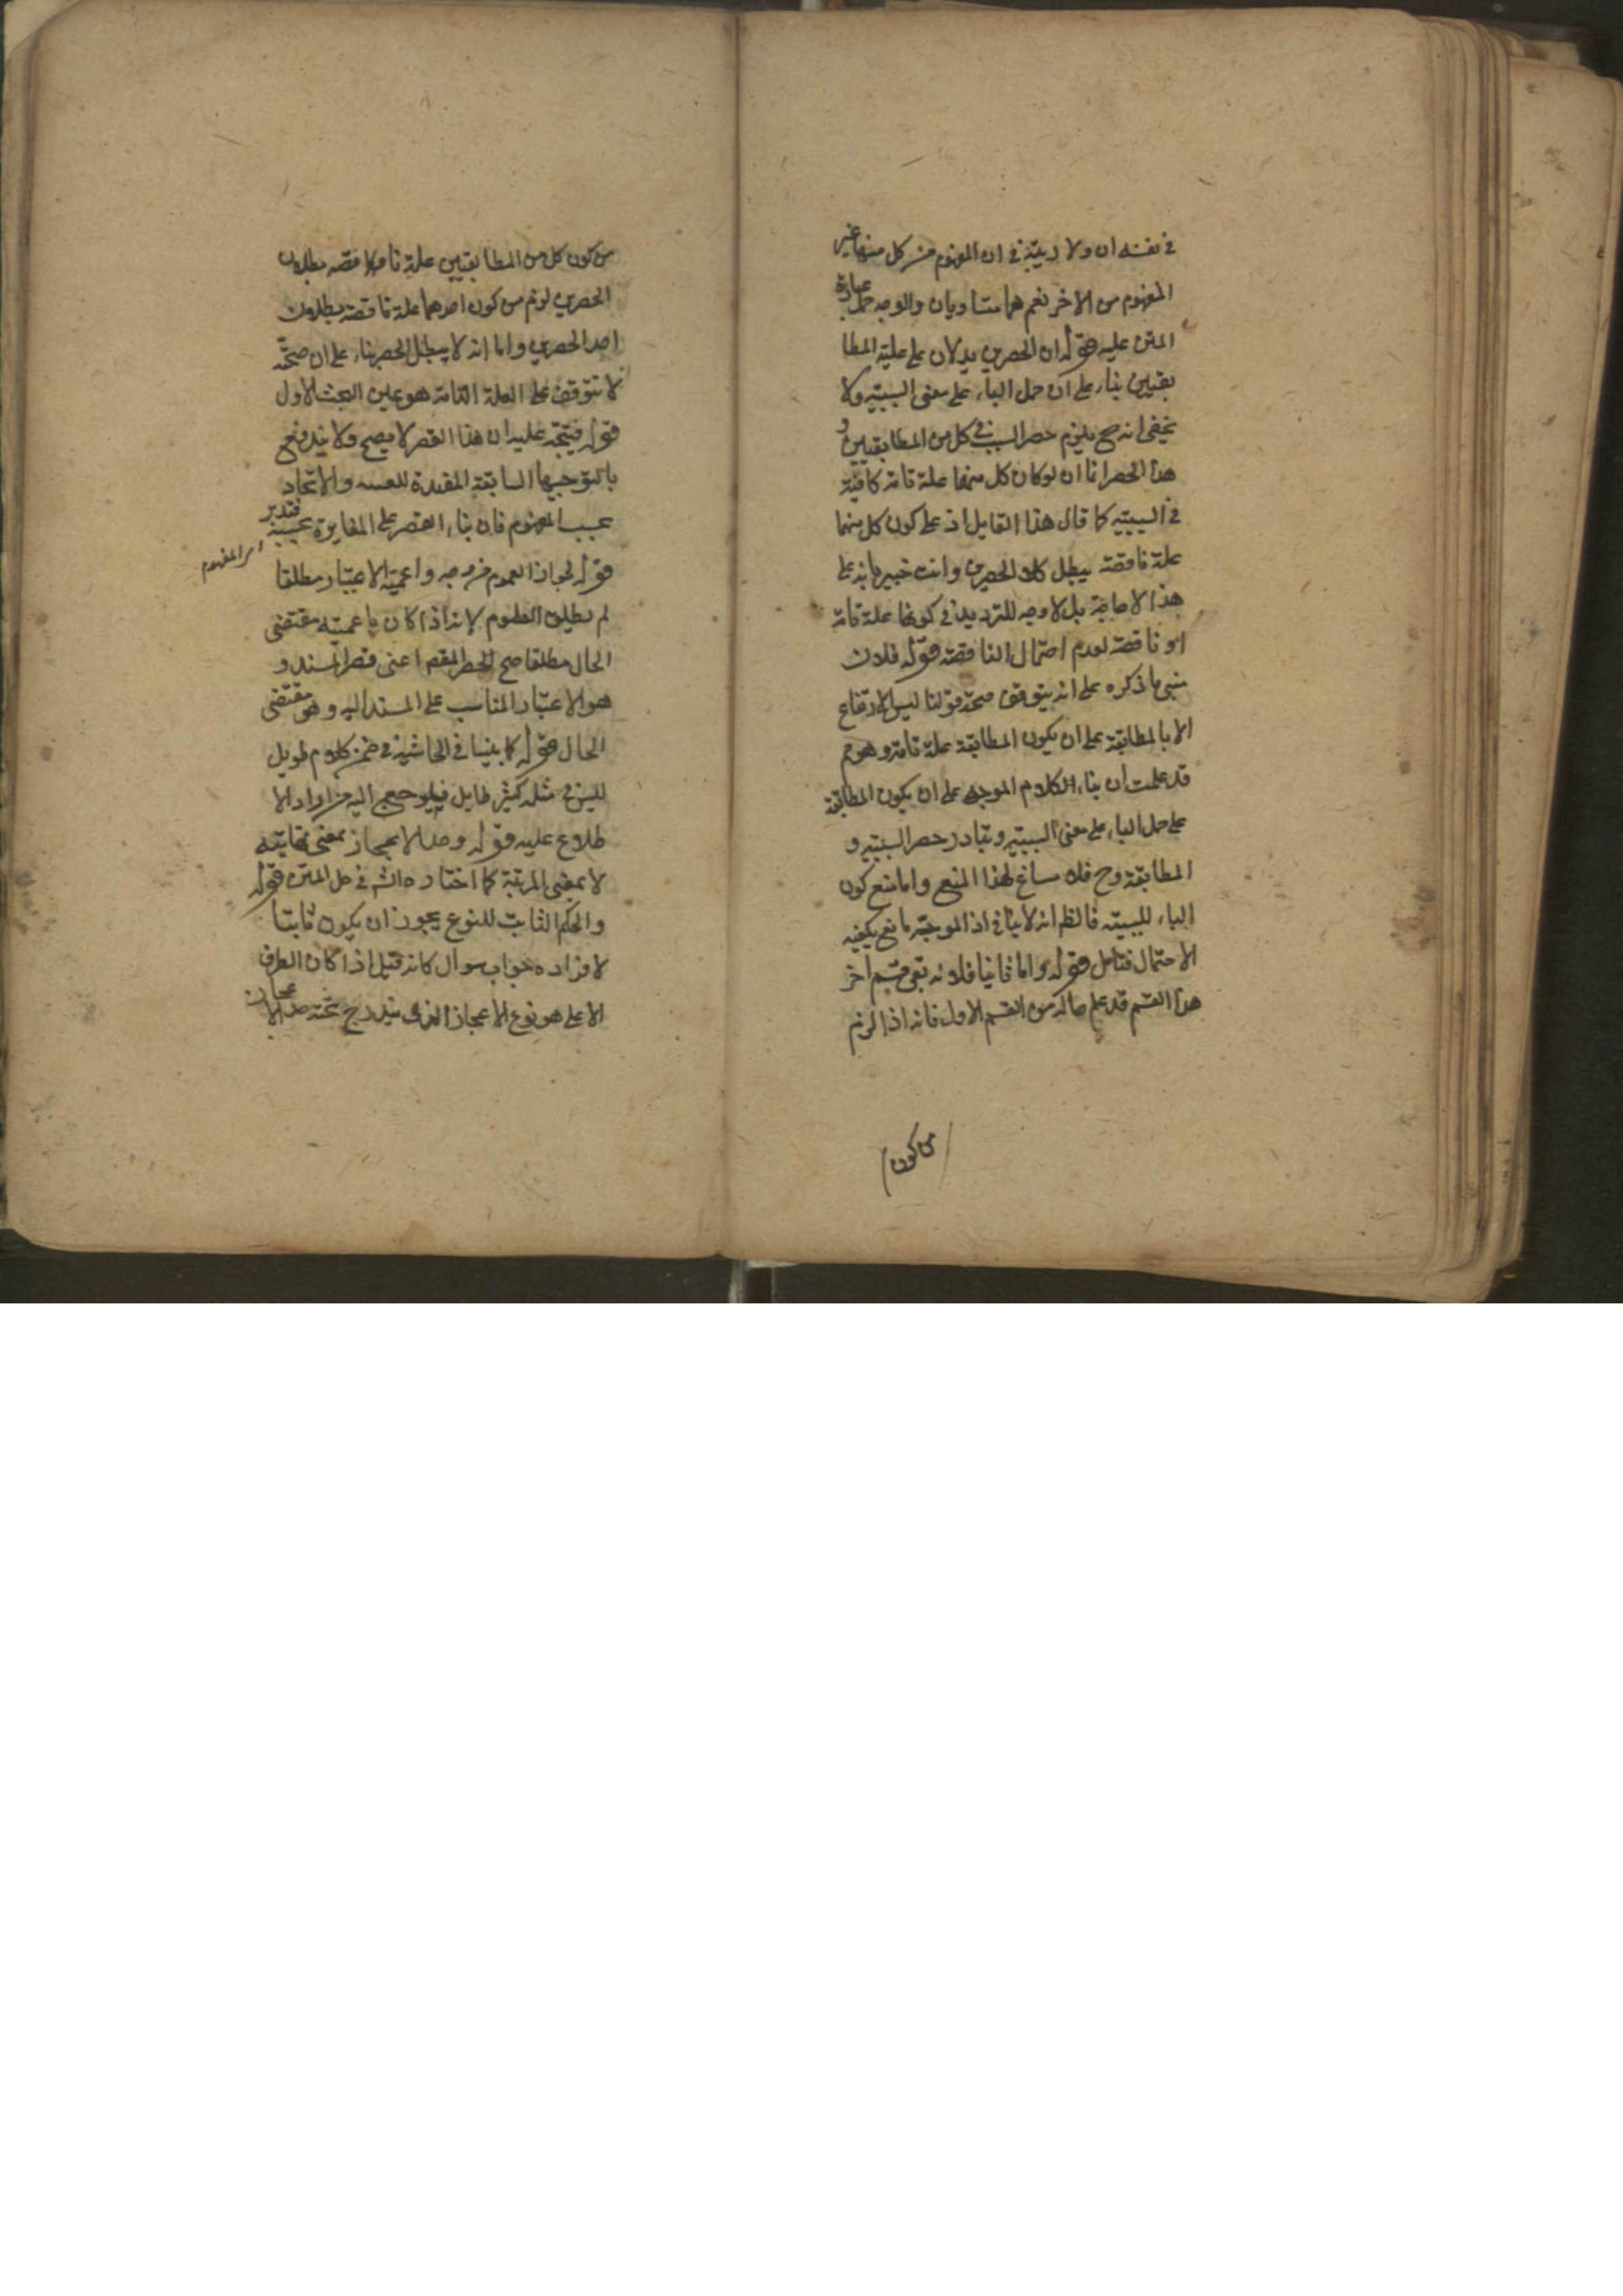 في نفسه ان ولا ريبة في ان المفهوم من كل منها غير
المفهوم من الاخر نعم هما متساويان والوجه حمل عبارة
المتن عليه قوله ان الحصرين يدلان على علية المطا
بقيين بناء على ان حمل الباء على معنى السببية ولا
يخفى انه ح يلزم حصر السبب في كل من المطابقيين و
هذا الحصر انما ان لو كان كل منهما علة تامة كافية
في السببية كما قال هذا القايل اذ على كون كل منهما
علة ناقصة يبطل كلا الحصرين وانت خبير بانه على
هذا لا حاجة بل لا وجه للترديد في كونها علة تامة
او ناقصة لعدم احتمال الناقصة قوله فلان
مبنى ما ذكره على انه يتوقف صحة قولنا ليس الارتفاع
الا بالمطابقة على ان يكون المطابقة علة تامة وهو مم
قد علمت ان بناء الكلام الموجه على ان يكون المطابقة
على حمل الباء على معنى السببية وتبادر حصر السببية و
المطابقة وح فلا مساغ لهذا المنع واما منع كون
الباء للسببية فالظم انه لا ينافي اذ الموجه مانع يكفيه
الاحتمال فتامل قوله واما ثانيا فلانه بقي قسم اخر
هذا القسم قد علم حاله من القسم الاول فانه اذا لزم
من كون
من كون كل من المطابقيين علة ناقصة بطلان
الحصرين لزم من كون احدهما علة ناقصة بطلان
احد الحصرين واما انه لا يبطل الحصر بناء على ان صحته
لا تتوقف على العلة التامة هو عين البحث الاول
قوله فيتجه عليه ان هذا القصر لا يصح ولا يندفع
بالتوجيها السابقة المفيدة والاتحاد
بحسب المفهوم فان بناء القصر على المغايرة بحسبه فتدبر
اى المفهوم
قوله لجواز العموم من وجه واعمية الاعتبار مطلقا
لم يطلق العلوم لانه اذا كان باعمية مقتضى
الحال مطلقا صح الحصر المقصر اعنى قصر المسند و
هو الاعتبار المناسب على المسند اليه وهو مقتضى
الحال قوله كما بينا في الحاشية في ضمن كلام طويل
ليس في مثله كثير طايل فليرجع اليه من اراد الا
طلاع عليه قوله وحد الاعجاز بمعنى نهايته
لا بمعنى المرتبة كما اختاره الش في حل المتن قوله
والحكم الثابت للنوع يجوز ان يكون ثابتا
لافراده جواب سوال كانه قيل اذا كان الطرف
الاعلى هو نوع الاعجاز الذى يندرج تحته حد الاعجاز